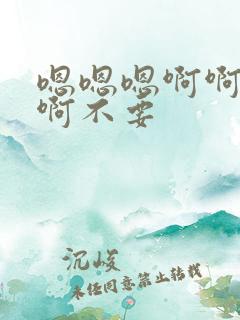 嗯嗯嗯啊啊
啊不要
沉峻
未经同意禁止转载